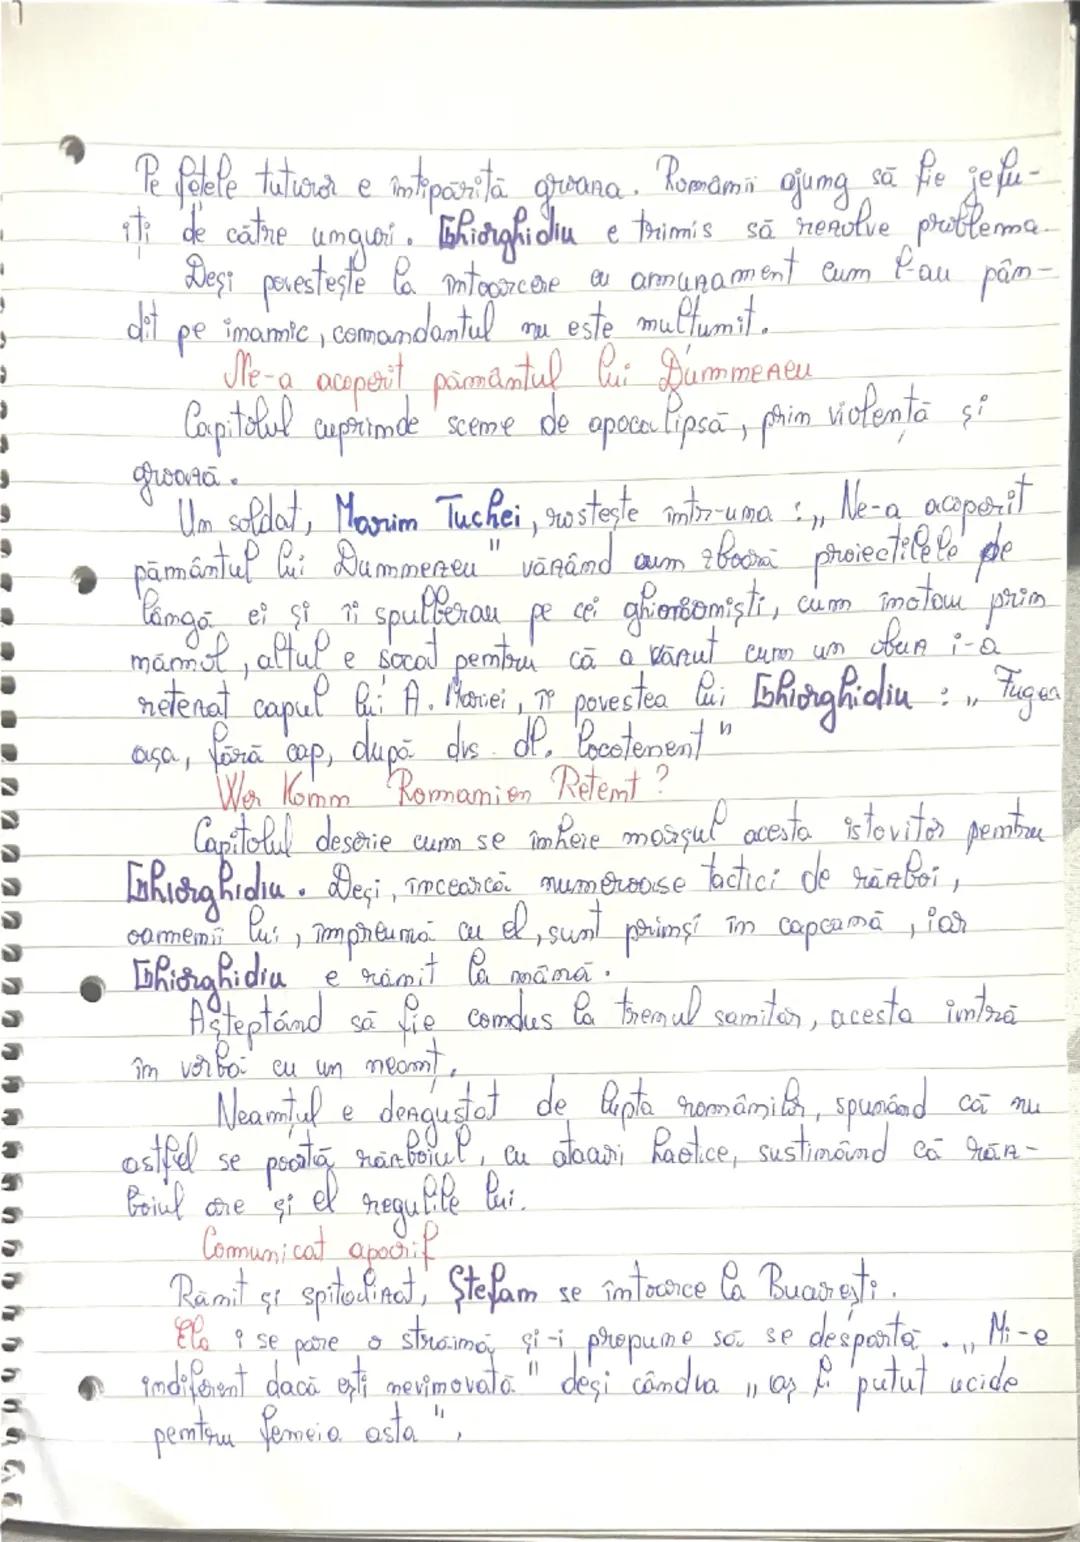 Pe fețele tuturor e întipărită groaza. Românii ajung să fie jefu-
iți de către unguri. Ghiorghidiu e trimis să rezolve problema.
Deși povestește la întoarcere cu amuzament cum l-au pân-
dit pe inamic, comandantul nu este mulțumit.
Ne-a acoperit pământul lui Dumnezeu
Capitolul cuprinde scene de apocalipsă, prin violență și
groază.
Un soldat, Marin Tuchei, rostește într-una : „ Ne-a acoperit
pământul lui Dumnezeu " văzând cum zboară proiectilele pe
lângă ei și îi spulberau pe cei ghionoiști, cum înotau prin
mămol, altul e socat pentru că a văzut cum un obuz i-a
retezat capul lui A. Mariei, îi povestea lui Ghiorghidiu : „ Fugea
așa, fără cap, după dvs. dl. locotenent "
Wer Komm Romanien Retemt ?
Capitolul descrie cum se înheie marșul acesta istovitor pentru
Ghiorghidiu. Deși, încearcă numeroase tactici de război,
oamenii lui, împreună cu el, sunt prinși în capcană, iar
Ghiorghidiu e rănit la mână.
Așteptând să fie condus la trenul sanitar, acesta intră
în vorbă cu un neamț.
Neamțul e dezgustat de lupta românilor, spunând că nu
astfel se poartă războiul, cu atacuri haotice, susținând că răz-
boiul are și el regulile lui.
Comunicat apocrif
Rănit și spitalizat, Ștefan se întoarce la București.
Ela i se pare o străină și-i propune să se despartă. „ Mi-e
indiferent dacă ești nevinovată " deși cândva „ aș fi putut ucide
pentru femeia asta ".